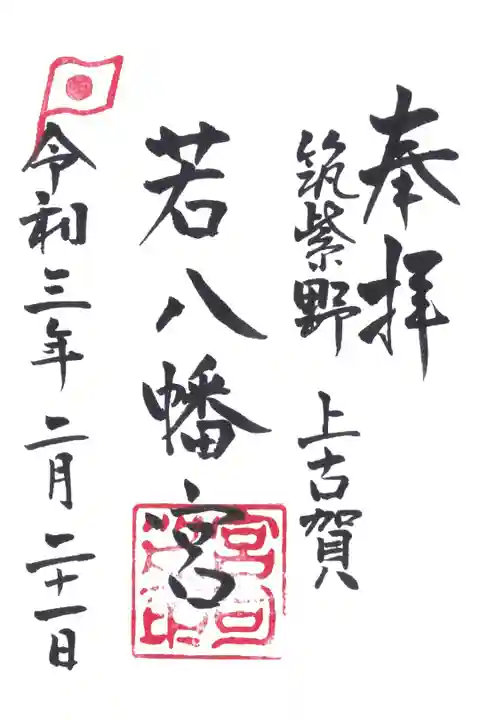 奉拝
筑紫野 上古賀
若八幡宮
令和三年 二月 二十一日